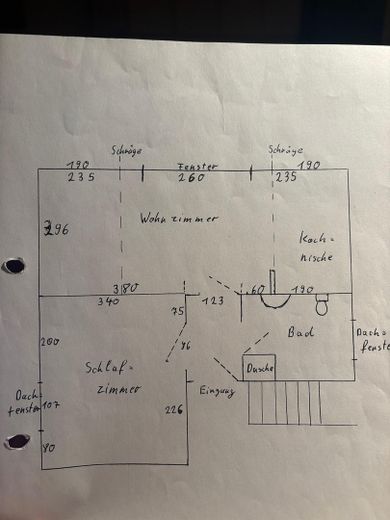 Schräge
Schräge
190
Fenster
190
235
260
235
296
Wohnzimmer
Koch=
nische
380
60
190
340
75
123
200
76
Bad
Dach=
fenster
Schlaf=
zimmer
Dusche
Dach
fenster
107
226
Eingang
80